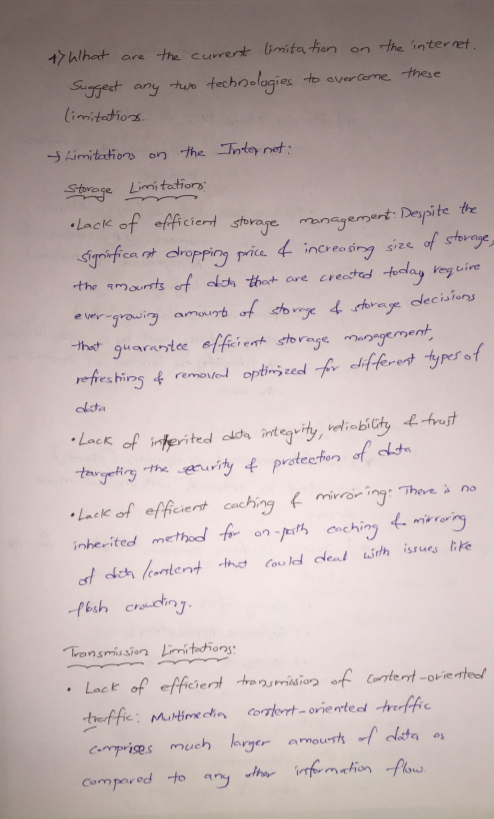 1) What are the current limitation on the internet.
Suggest any two technologies to overcome these
limitations.
→ Limitations on the Internet:
Storage Limitations:
• Lack of efficient storage management: Despite the
significant dropping price & increasing size of storage,
the amounts of data that are created today require
ever-growing amounts of storage & storage decisions
that guarantee efficient storage management,
refreshing & removal optimized for different types of
data
• Lack of inherited data integrity, reliability & trust
targeting the security & protection of data
• Lack of efficient caching & mirroring: There is no
inherited method for on-path caching & mirroring
of data/content that could deal with issues like
flash crowding.
Transmission Limitations:
• Lack of efficient transmission of content-oriented
traffic: Multimedia content-oriented traffic
comprises much larger amounts of data as
compared to any other information flow.